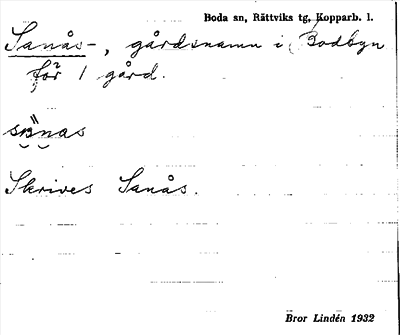 Boda sn, Rättviks tg, Kopparb. l.
Sanås-, gårdsnamn i Bodbyn
för 1 gård.
Skrives Sanås.
Bror Lindén 1932